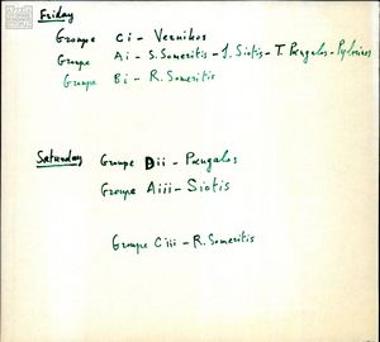 Friday
Groupe Ci - Vernikos
Groupe Ai - S. Someritis - J. Siotis - T. Pangalos - Pylarinos
Groupe Bi - R. Someritis
Saturday Groupe Dii - Pangalos
Groupe Aiii - Siotis
Groupe Ciii - R. Someritis